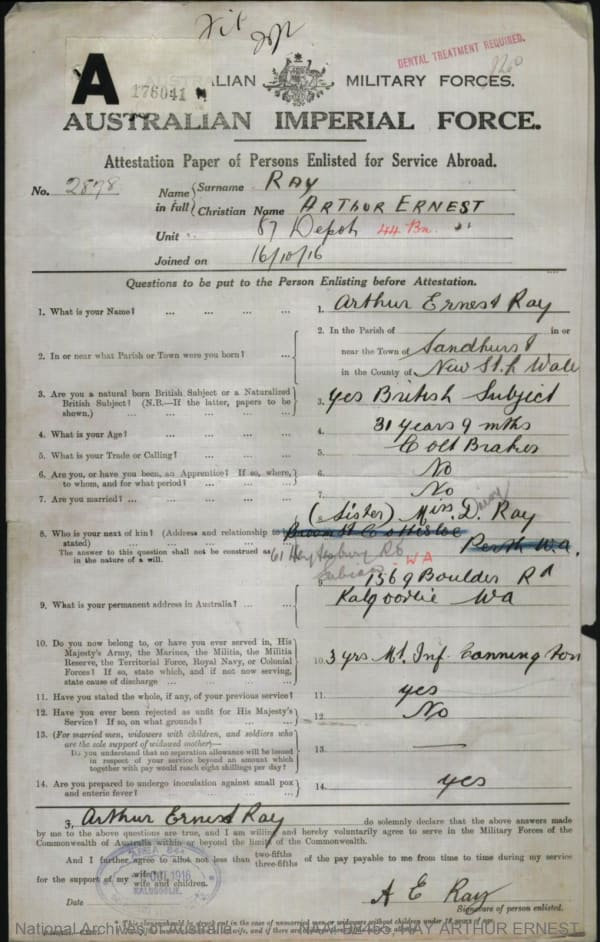 DENTAL TREATMENT REQUIRED.
A
176041
AUSTRALIAN MILITARY FORCES.
AUSTRALIAN IMPERIAL FORCE.
Attestation Paper of Persons Enlisted for Service Abroad.
No. 2878
Name in full { Surname RAY
Christian Name ARTHUR ERNEST
Unit 87 Depot 44 Bn.
Joined on 16/10/16
Questions to be put to the Person Enlisting before Attestation.
1. What is your Name? ... ... ... ... 1. Arthur Ernest Ray
2. In or near what Parish or Town were you born? ... 2. In the Parish of in or
near the Town of Sandhurst
in the County of New Sth Wale
3. Are you a natural born British Subject or a Naturalized
British Subject? (N.B.—If the latter, papers to be
shown.) ... ... ... ... 3. yes British Subject
4. What is your Age? ... ... ... ... 4. 31 years 9 mths
5. What is your Trade or Calling? ... ... ... 5.
6. Are you, or have you been, an Apprentice? If so, where,
to whom, and for what period? ... ... ... 6. No
7. Are you married? ... ... ... ... 7. No
8. Who is your next of kin? (Address and relationship to be
stated) ... ... ... ...
The answer to this question shall not be construed as
in the nature of a will.
(Sister) Miss D. Ray
Perth W.A.
61 Heytesbury Rd
Subiaco W A
9. What is your permanent address in Australia? ... ... 9. 156 9 Boulder Rd
Kalgoorlie Wa
10. Do you now belong to, or have you ever served in, His
Majesty's Army, the Marines, the Militia, the Militia
Reserve, the Territorial Force, Royal Navy, or Colonial
Forces? If so, state which, and if not now serving,
state cause of discharge ... ... ... 10. 3 yrs Mt. Inf. Cannington
11. Have you stated the whole, if any, of your previous service? 11. yes
12. Have you ever been rejected as unfit for His Majesty's
Service? If so, on what grounds? ... ... ... 12. No
13. (For married men, widowers with children, and soldiers who
are the sole support of widowed mother)—
Do you understand that no separation allowance will be issued
in respect of your service beyond an amount which
together with pay would reach eight shillings per day? 13. —
14. Are you prepared to undergo inoculation against small pox
and enteric fever? ... ... ... ... 14. yes
I, Arthur Ernest Ray do solemnly declare that the above answers made
by me to the above questions are true, and I am willing and hereby voluntarily agree to serve in the Military Forces of the
Commonwealth of Australia within or beyond the limits of the Commonwealth.
And I further agree to allot not less than two-fifths three-fifths of the pay payable to me from time to time during my service
for the support of my wife wife and children.
1916
KALGOORLIE.
Date
A E Ray
Signature of person enlisted.
National Archives of Australia NAA: B2455, RAY ARTHUR ERNEST